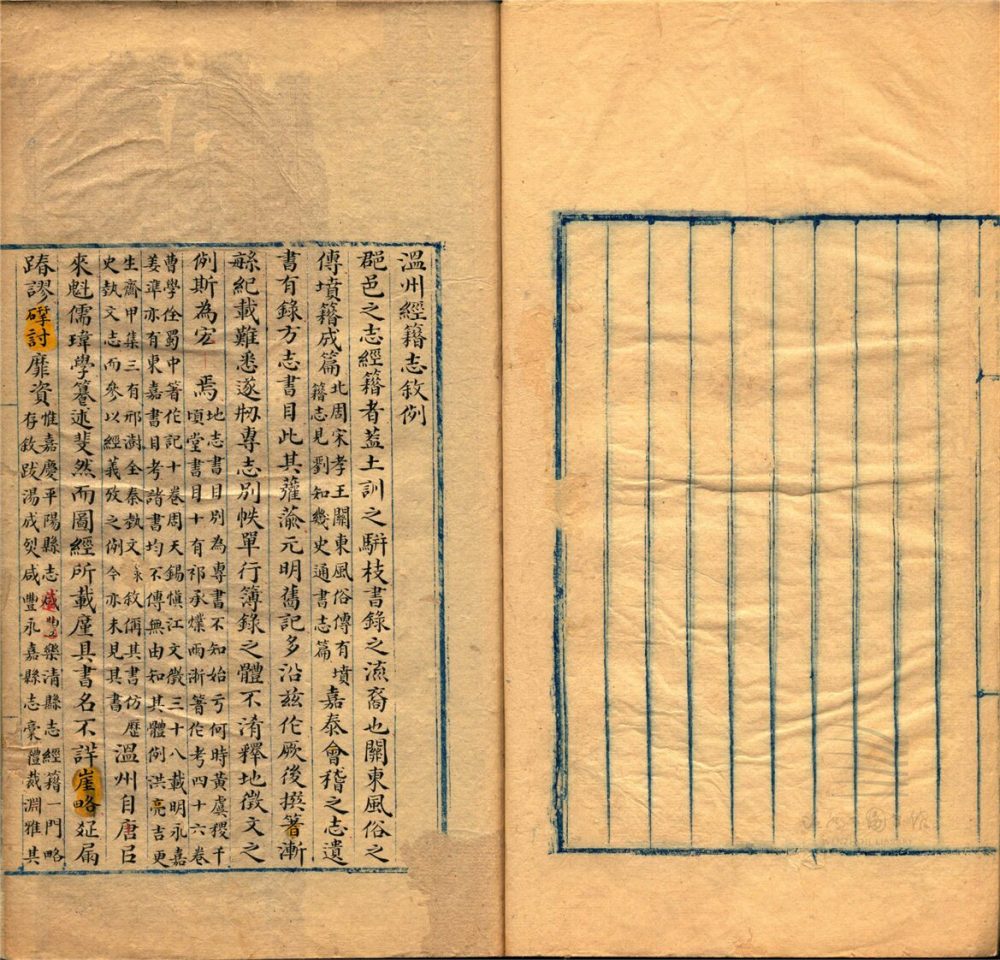 溫州經籍志敘例
郡邑之志經籍者蓋土訓之駢枝書錄之流裔也關東風俗之
傳墳籍成篇北周宋孝王關東風俗傳有墳
籍志見劉知幾史通書志篇嘉泰會稽之志遺
書有錄方志書目此其虇蕍元明舊記多沿茲作厥後撰箸漸
緐紀載難悉遂刱專志別帙單行簿錄之體不淆釋地徵文之
例斯為宏焉地志書目別為專書不知始亏何時黃虞稷千
頃堂書目十有祁承㸁兩浙箸作考四十六卷
曹學佺蜀中箸作記十卷周天錫慎江文徵三十八載明永嘉
姜準亦有東嘉書目考諸書均不傳無由知其體例洪亮吉更
生齋甲集三有邢澍全秦埶文錄敘偁其書仿歷
史埶文志而參以經義攷之例今亦未見其書溫州自唐㠯
來魁儒瑋學纂述斐然而圖經所載廑具書名不詳崖略延扇
踳謬揅討靡資惟嘉慶平陽縣志咸豐樂清縣志經籍一門略
存敘跋湯成烈咸豐永嘉縣志稾體裁淵雅其